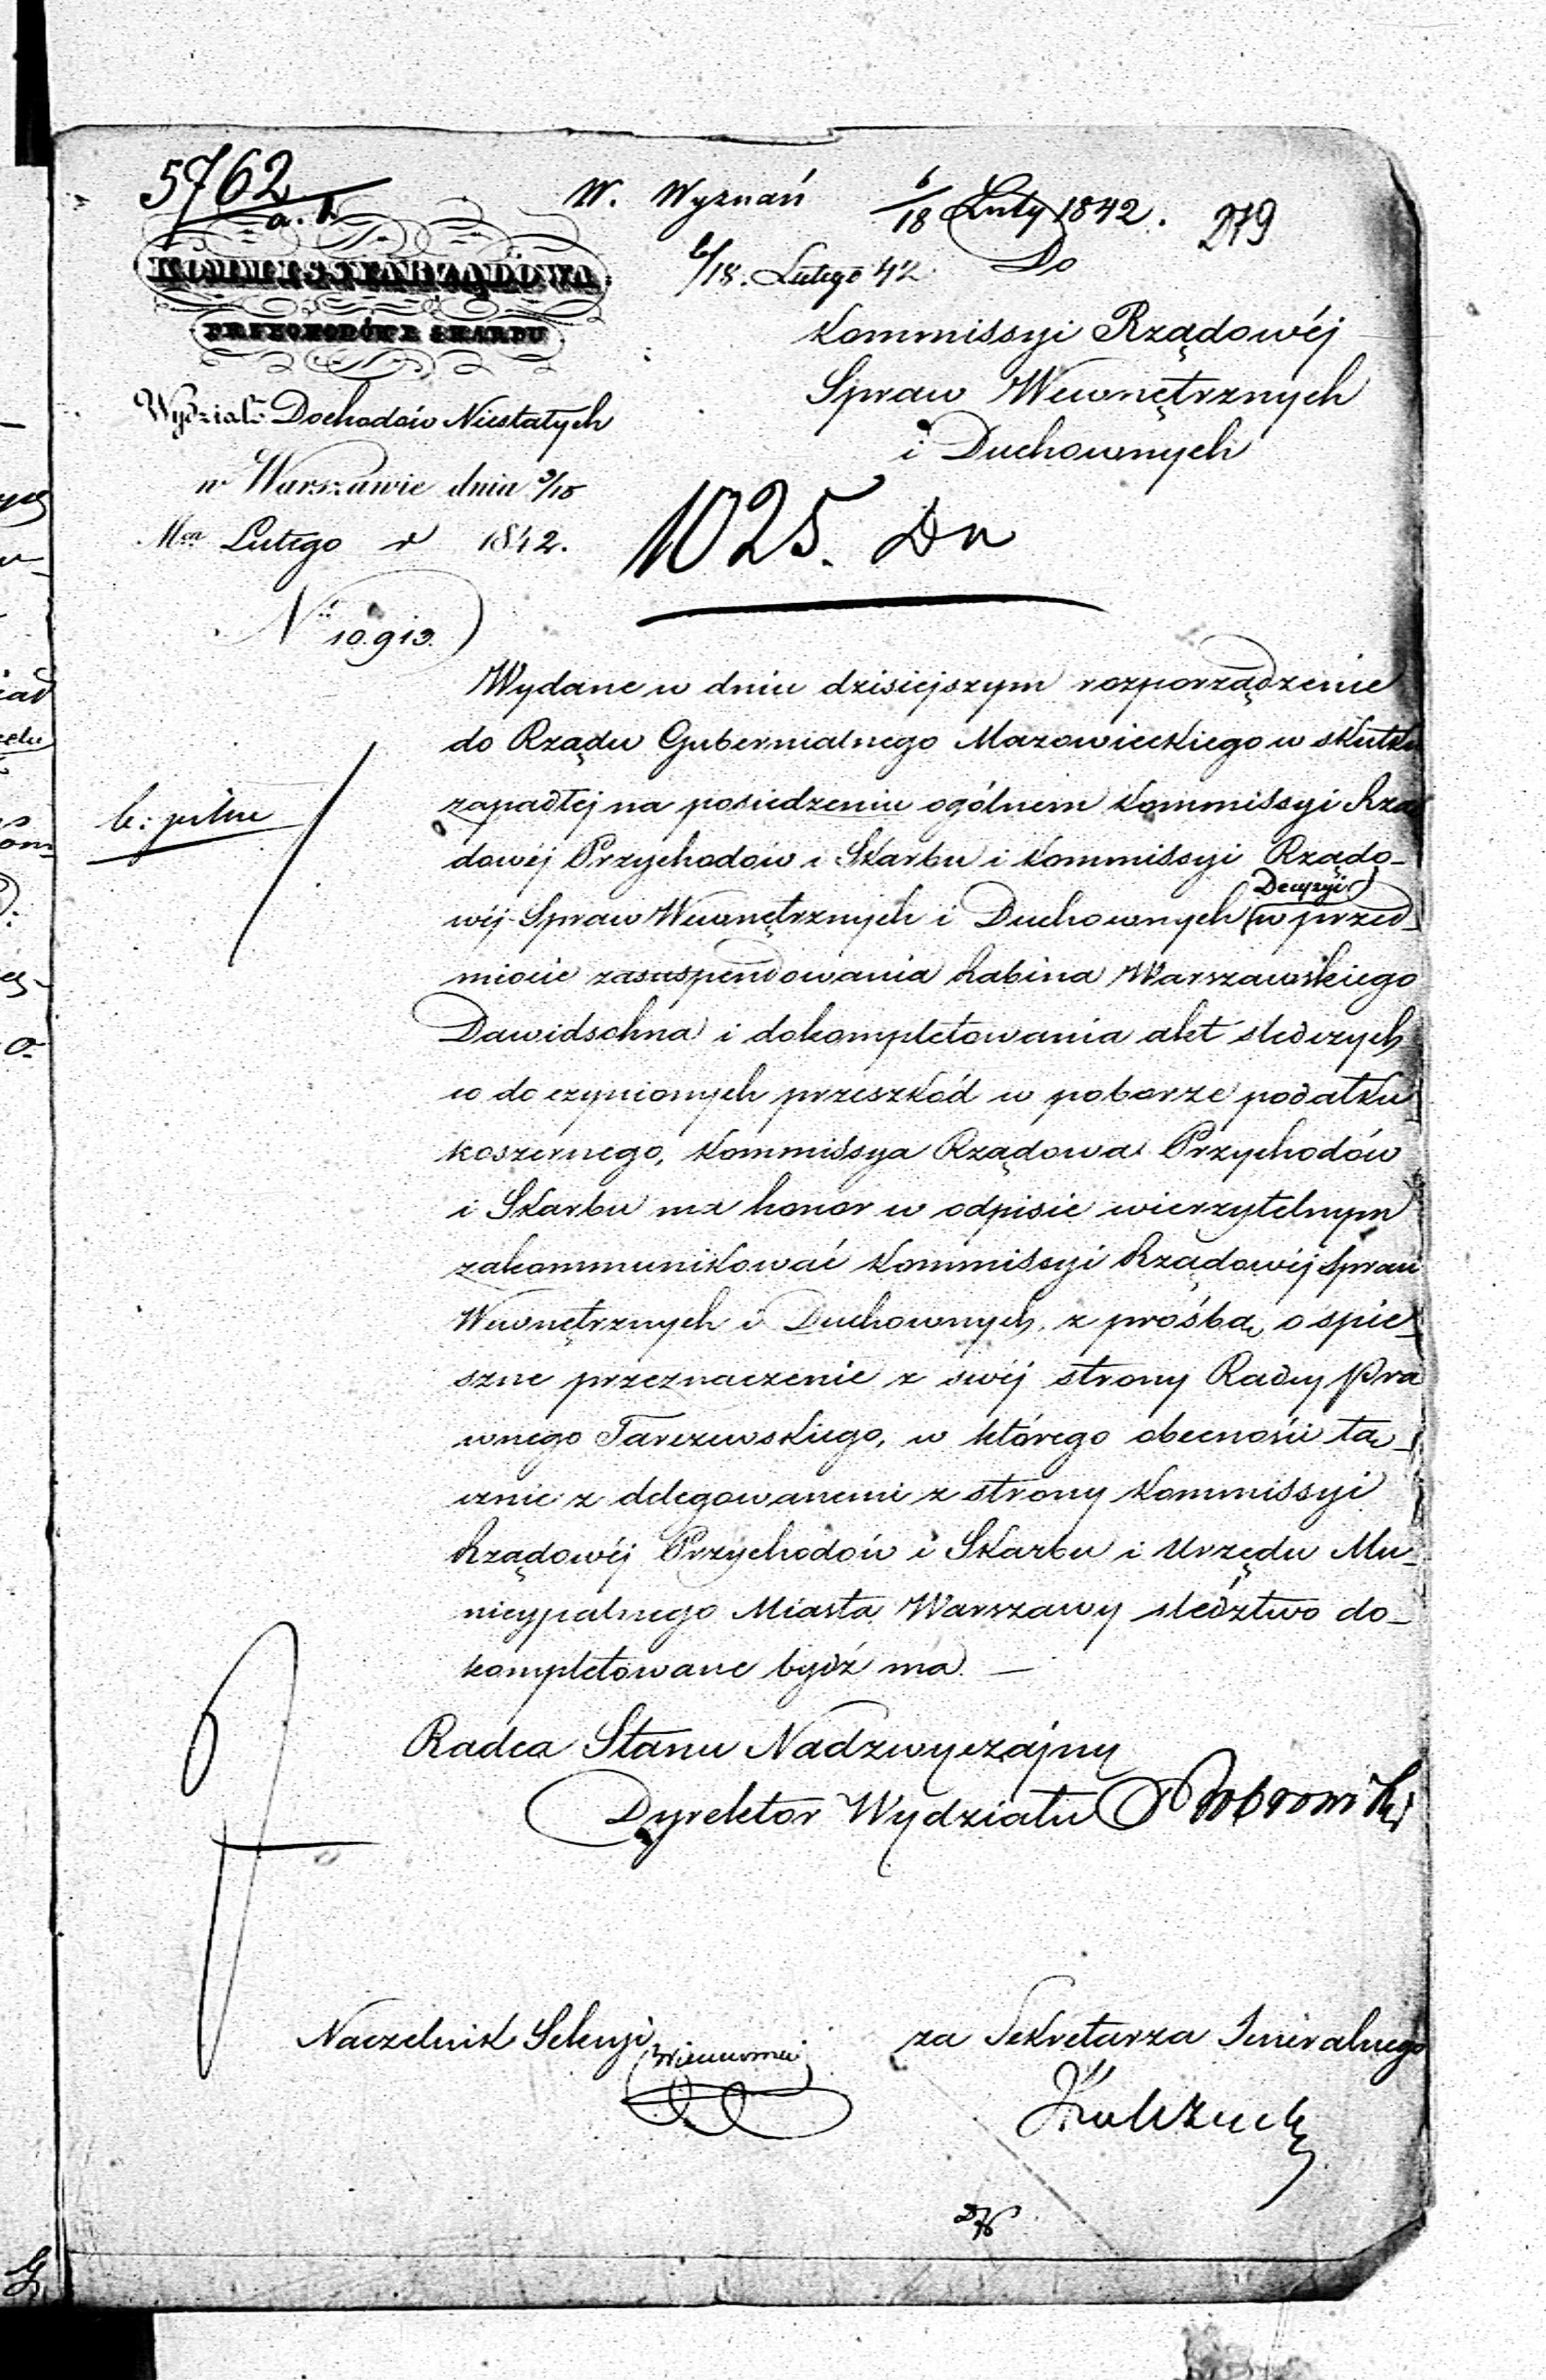 5762
a. b.
W. Wyznań 6/18 Luty 1842. 279
6/18. Lutego 42
Do
KOMMISSYA RZĄDOWA
PRZYCHODÓW I SKARBU
Kommissyi Rządowéj
Spraw Wewnętrznych
i Duchownych
Wydział Dochodów Niestałych
w Warszawie dnia 3/15
Mca Lutego r 1842.
1025. Dn
Nr 10.913.
b: pilne
Wydane w dniu dzisiejszym rozporządzenie
do Rządu Gubernialnego Mazowieckiego w skutku
zapadłej na posiedzeniu ogólnem Kommissyi Rzą
dowéj Przychodów i Skarbu i Kommissyi Rządo-
wéj Spraw Wewnętrznych i Duchownych Decyzyi w przed-
miocie zasuspendowania Rabina Warszawskiego
Dawidsohna i dokompletowania akt śledczych
co do czynionych przeszkód w poborze podatku
koszernego, Kommissya Rządowa Przychodów
i Skarbu ma honor w odpisie wierzytelnym
zakommunikować Kommissyi Rządowéj Spraw
Wewnętrznych i Duchownych, z prośbą o spie-
szne przeznaczenie z swéj strony Radcy Pra
wnego Tarczewskiego, w którego obecności łą-
cznie z delegowanemi z strony Kommissyi
Rządowéj Przychodów i Skarbu i Urzędu Mu-
nicypalnego Miasta Warszawy śledztwo do-
kompletowane bydź ma. —
Radca Stanu Nadzwyczajny
Dyrektor Wydziału
Naczelnik Sekcyi
za Sekretarza Jeneralnego